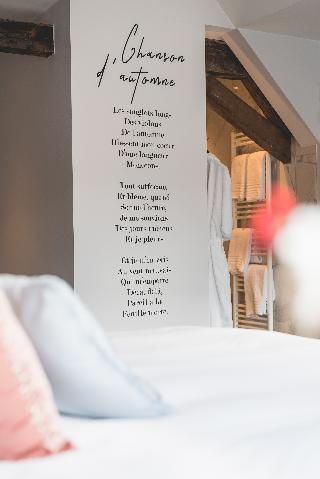 Chanson
d'automne
Les sanglots longs
Des violons
De l'automne
Blessent mon coeur
D'une langueur
Monotone.
Tout suffocant
Et blême, quand
Sonne l'heure,
Je me souviens
Des jours anciens
Et je pleure
Et je m'en vais
Au vent mauvais
Qui m'emporte
Deçà, delà,
Pareil à la
Feuille morte.